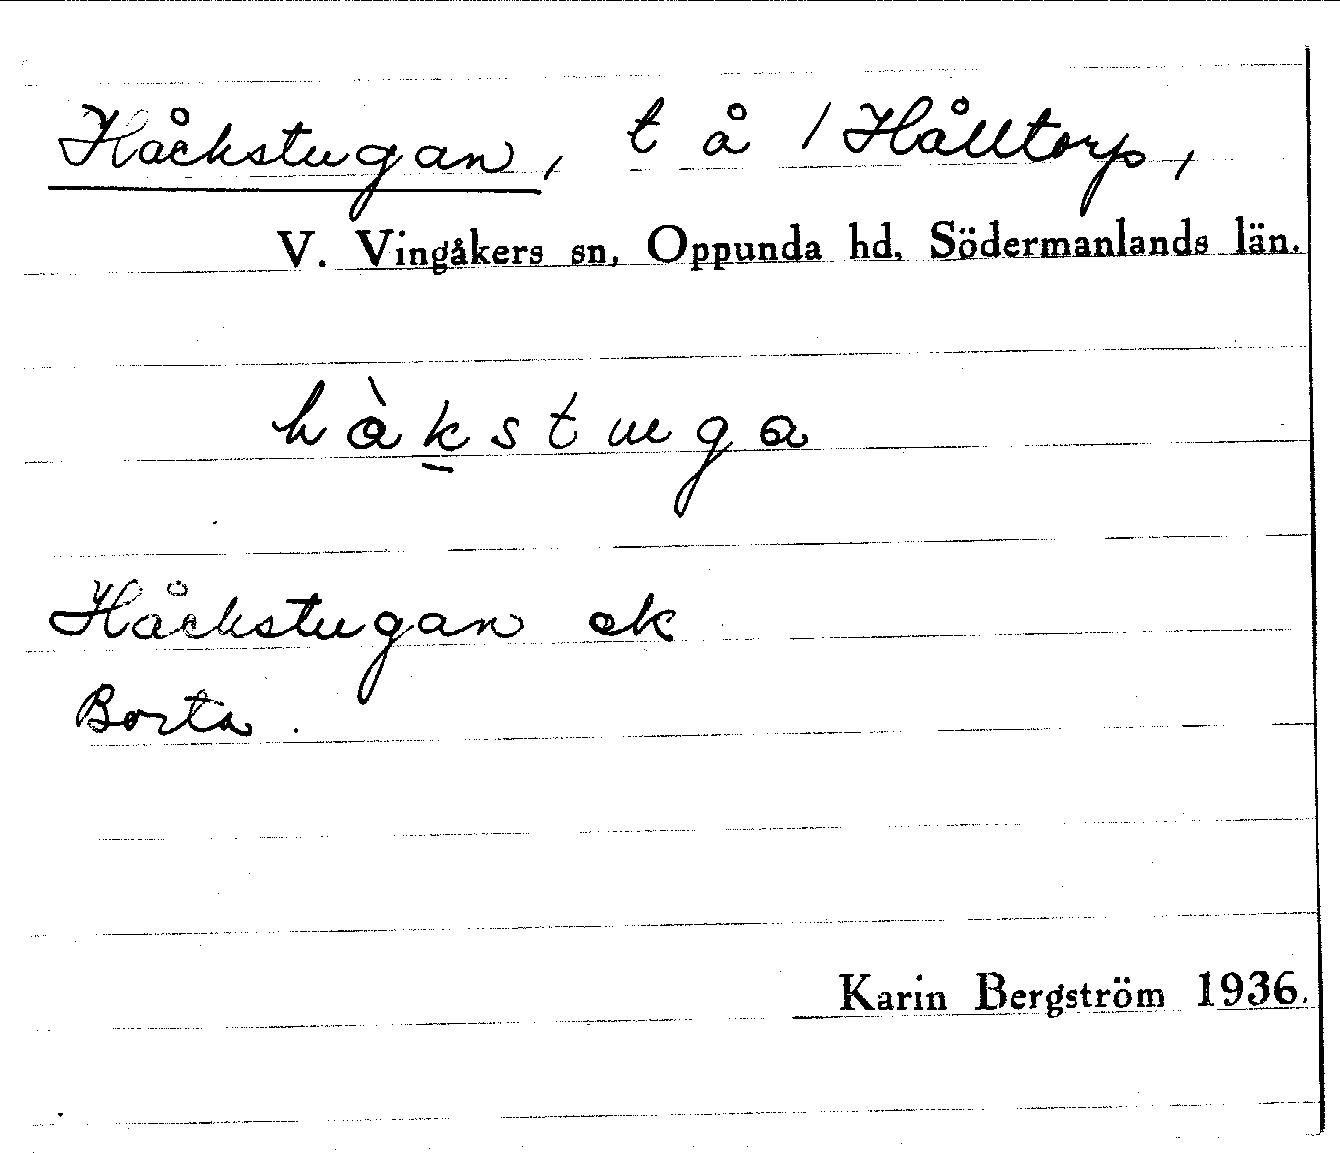 Håckstugan, t å / Hålltorp,
V. Vingåkers sn, Oppunda hd, Södermanlands län.
hàk̲stuga
Håckstugan ek
Borta.
Karin Bergström 1936.